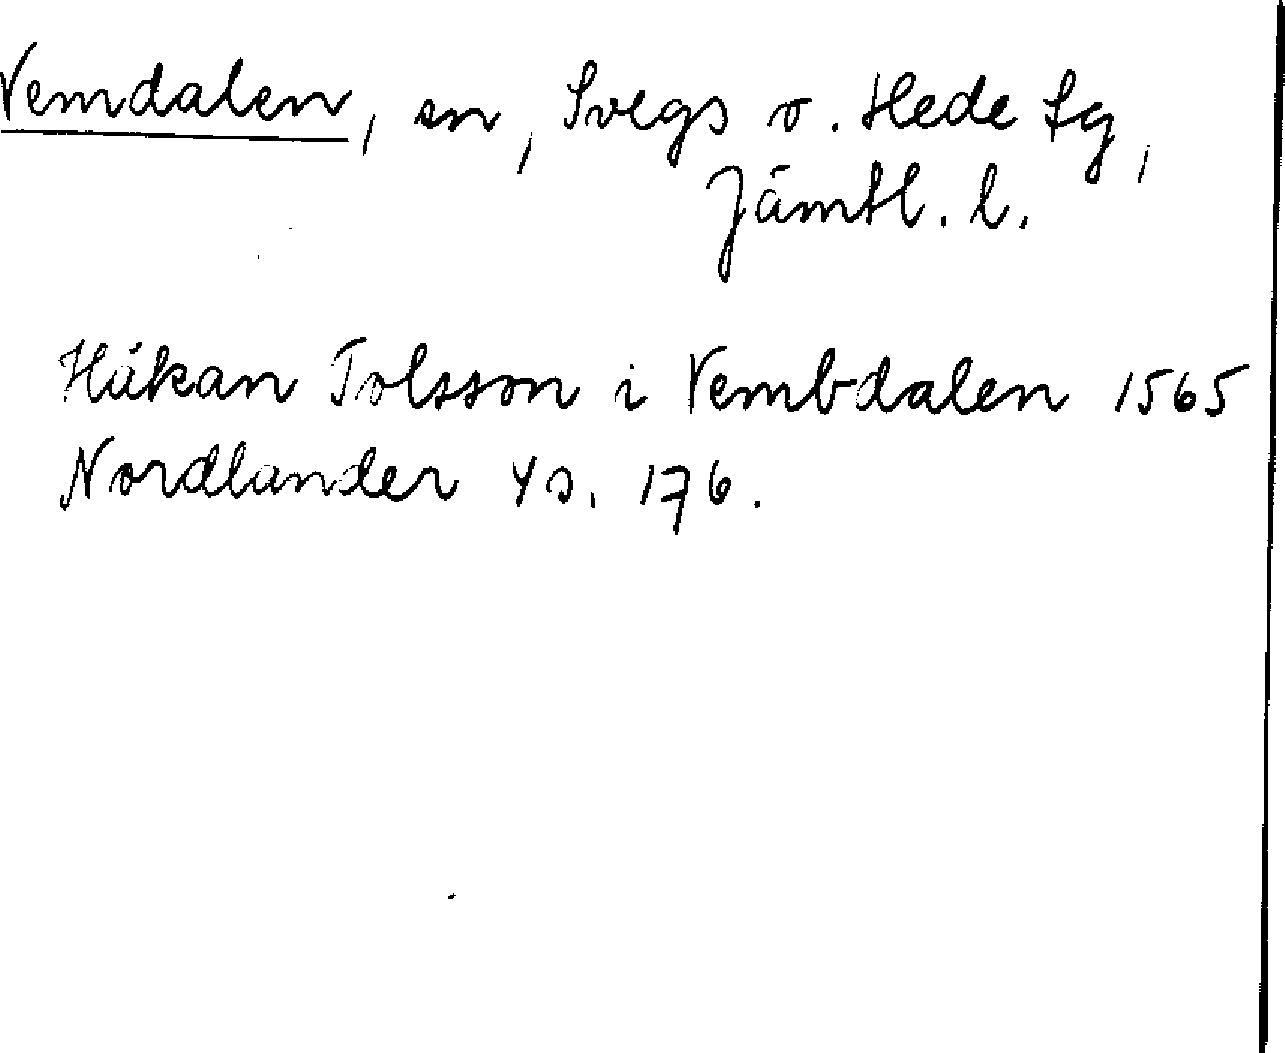 Vemdalen, sn, Svegs o. Hede tg,
Jämtl. l.
Håkan Tolsson i Vembdalen 1565
Nordlander 4 s. 176.